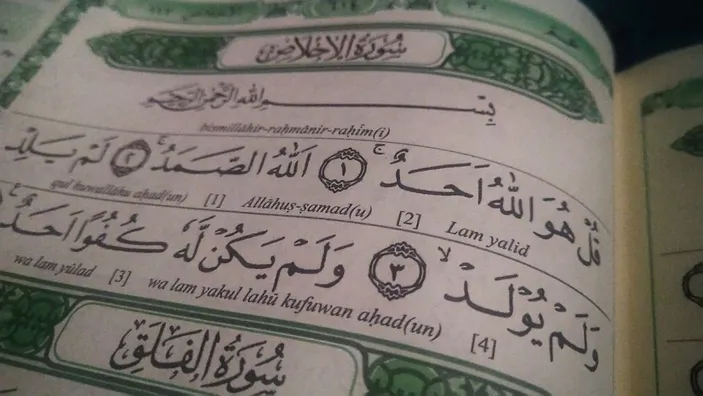 سُورَةُ الْإِخْلَاصِ
بِسْمِ اللَّهِ الرَّحْمَٰنِ الرَّحِيمِ
bismillāhir-raḥmānir-raḥīm(i)
قُلْ هُوَ اللَّهُ أَحَدٌ ۚ ١ اَللَّهُ الصَّمَدُ ۚ ٢ لَمْ يَلِدْ
qul huwallāhu aḥad(un) [1] Allāhuṣ-ṣamad(u) [2] Lam yalid
وَلَمْ يُوْلَدْ ۙ ٣ وَلَمْ يَكُنْ لَّهٗ كُفُوًا اَحَدٌ
wa lam yūlad [3] wa lam yakul lahū kufuwan aḥad(un) [4]
سُورَةُ الْفَلَقِ